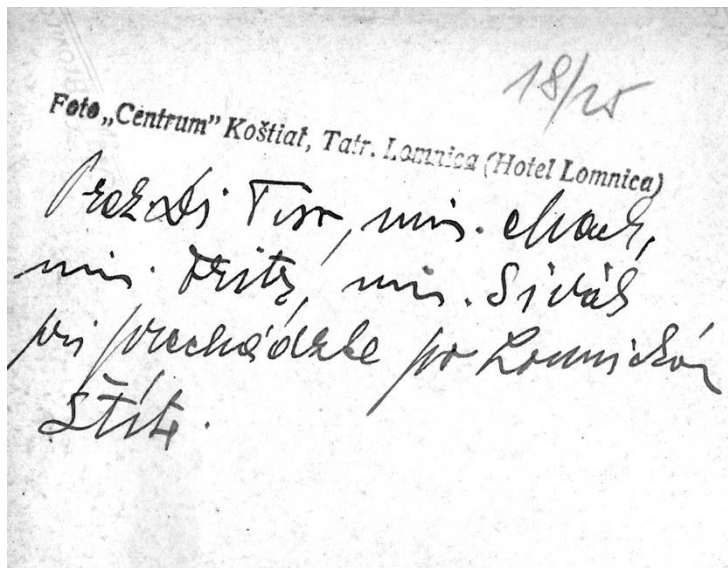 18/25
Foto „Centrum” Koštial, Tatr. Lomnica (Hotel Lomnica)
Prez. Dr Tiso, min. Mach,
min. Fritz, min. Sivák
pri prechádzke po Lomnickom
Štíte.